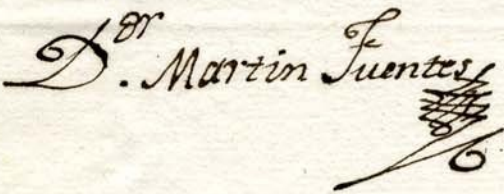 D.or Martin Fuentes